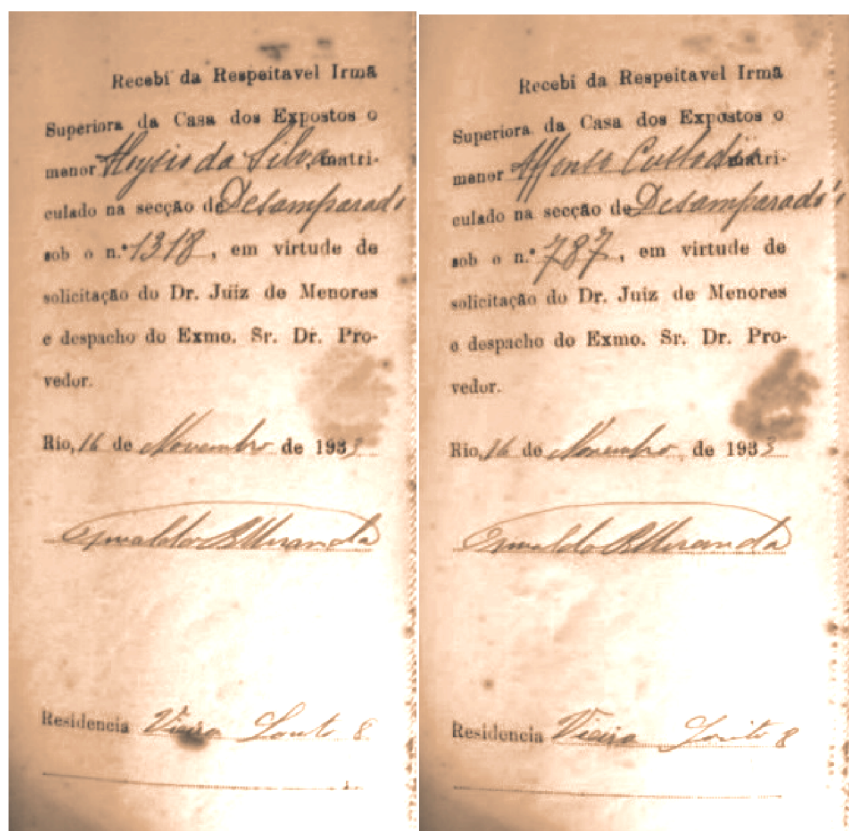 Recebi da Respeitavel Irmã
Superiora da Casa dos Expostos o
menor Aloysio da Silva, matri-
culado na secção de Desamparados
sob o n.º 1318, em virtude de
solicitação do Dr. Juiz de Menores
e despacho do Exmo. Sr. Dr. Pro-
vedor.
Rio, 16 de Novembro de 1933
Oswaldo R Miranda
Residencia Vieira Souto 8
Recebi da Respeitavel Irmã
Superiora da Casa dos Expostos o
menor Affonso Custodio, matri-
culado na secção de Desamparados
sob o n.º 787, em virtude de
solicitação do Dr. Juiz de Menores
e despacho do Exmo. Sr. Dr. Pro-
vedor.
Rio, 16 de Novembro de 1933
Oswaldo R Miranda
Residencia Vieira Souto 8